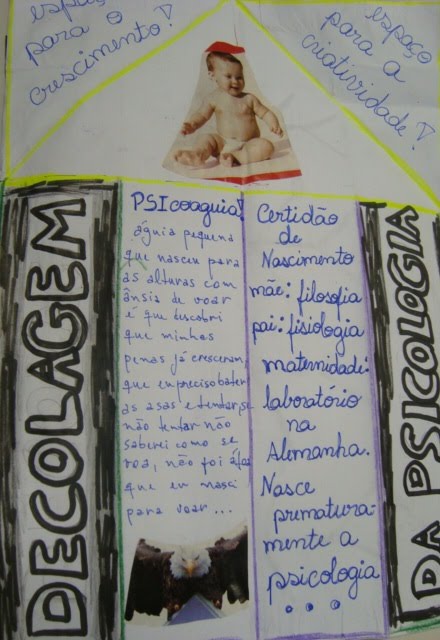 espaço
para o
crescimento!
espaço
para a
criatividade!
DECOLAGEM
PSIcoaguia!
águia pequena
que nasceu para
as alturas com
ânsia de voar
é que descobri
que minhas
penas já cresceram
que eu preciso bater
as asas e tentar, se
não tentar não
saberei como se
voa, não foi
que eu nasci
para voar...
Certidão
de
Nascimento
mãe: filosofia
pai: fisiologia
maternidade:
laboratório
na
Alemanha.
Nasce
prematura-
mente a
psicologia
...
DA PSICOLOGIA